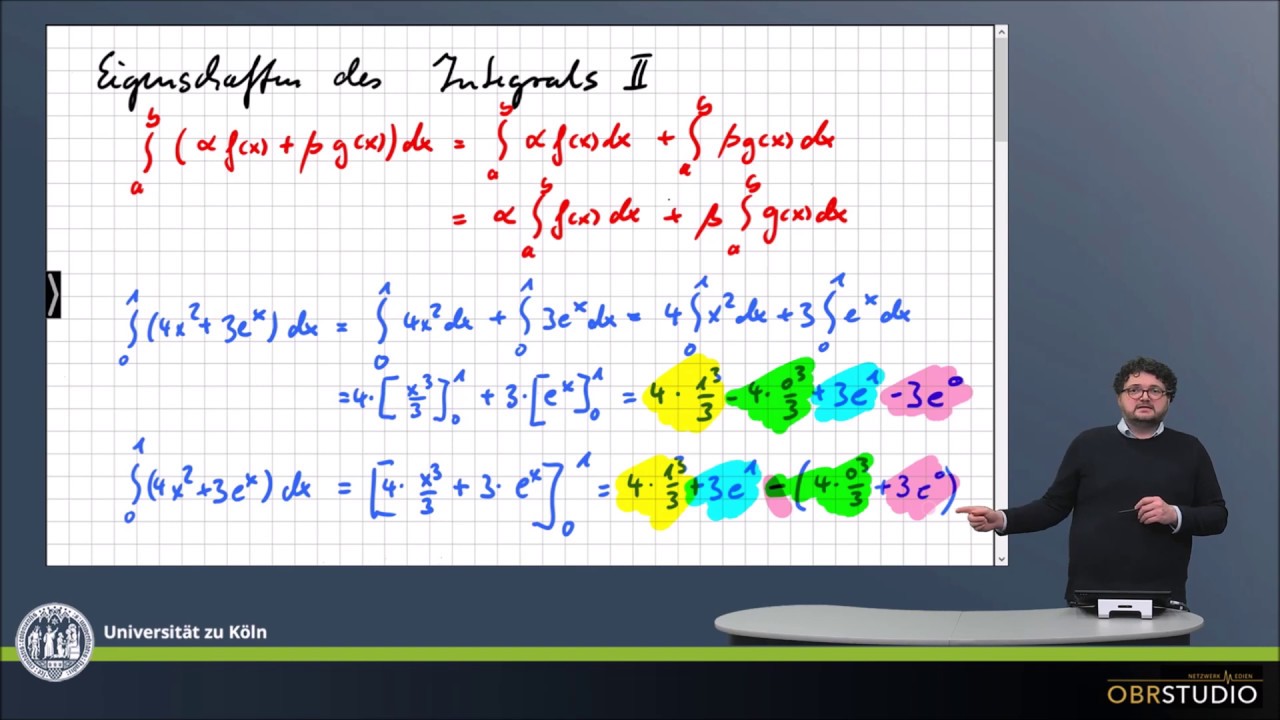 Eigenschaften des Integrals II
∫_a^b (αf(x) + βg(x))dx = ∫_a^b αf(x)dx + ∫_a^b βg(x)dx
= α∫_a^b f(x)dx + β∫_a^b g(x)dx
∫_0^1 (4x² + 3eˣ) dx = ∫_0^1 4x² dx + ∫_0^1 3eˣ dx = 4∫_0^1 x² dx + 3∫_0^1 eˣ dx
= 4·[x³/3]_0^1 + 3·[eˣ]_0^1 = 4·1³/3 - 4·0³/3 + 3e¹ - 3e⁰
∫_0^1 (4x² + 3eˣ) dx = [4·x³/3 + 3·eˣ]_0^1 = 4·1³/3 + 3e¹ - (4·0³/3 + 3e⁰)
Universität zu Köln
NETZWERK MEDIEN
OBRSTUDIO